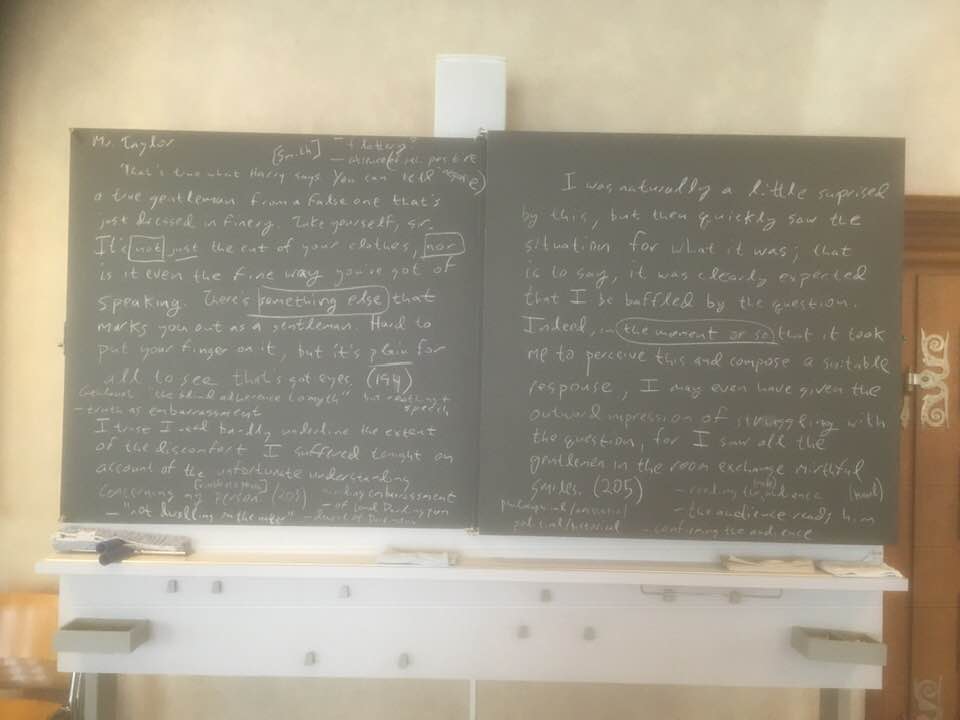 Mr. Taylor
[Smith] - "flattery"
That's true what Harry says. You can tell
a true gentleman from a false one that's
just dressed in finery. Take yourself, sir.
It's not just the cut of your clothes, nor
is it even the fine way you've got of
speaking. There's something edse that
marks you out as a gentleman. Hard to
put your finger on it, but it's plain for
all to see that's got eyes. (194)
"the blind adherence to myth"
- truth as embarrassment
I trust I need hardly underline the extent
of the discomfort I suffered tonight on
account of the unfortunate understanding
concerning my person. (205) - reading embarrassment
- of Lord Darlington
- "not dwelling on the matter"
I was naturally a little suprised
by this, but then quickly saw the
situation for what it was; that
is to say, it was clearly expected
that I be baffled by the question.
Indeed, in the moment or so that it took
me to perceive this and compose a suitable
response, I may even have given the
outward impression of struggling with
the question, for I saw all the
gentlemen in the room exchange mirthful
smiles. (205)
- reading the audience
- the audience reads him
- confirming the audience